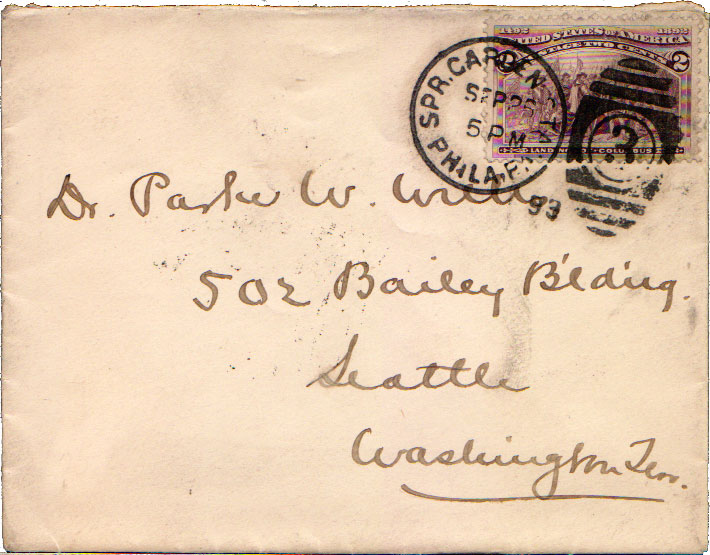 1492 UNITED STATES OF AMERICA 1892
TWO CENTS
2 2
LANDING OF COLUMBUS
SPR. GARDEN STA
SEP 25
5 PM
PHILA, PA.
93
Dr. Parke W.
502 Bailey B'lding.
Seattle
Washington Terr.